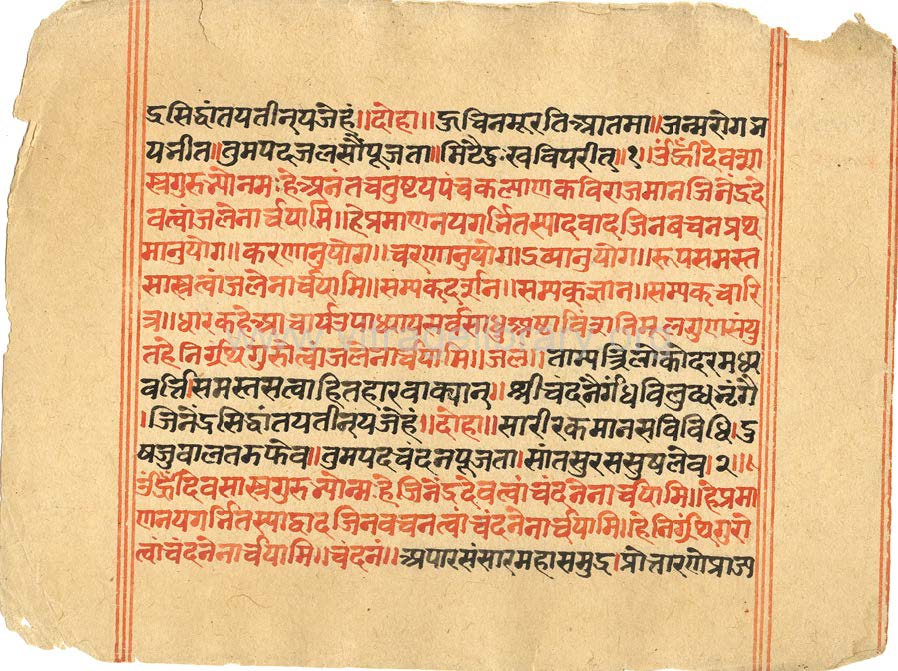 द्रसिद्धांतयतीन्यजेहं॥दोहा॥द्रुचिनमूरतिआतमा॥जन्मरोगम
यनीत॥तुमपदजलसौंपूजता॥मिटैदुःखविपरीत॥१॥उंह्रींदेवशा
स्त्रगुरुभ्योनमःहेअनंतचतुष्टयपंचकल्याणकविराजमानजिनेंद्रदे
वत्वांजलेनार्चयामि॥हेप्रमाणनयगर्भितस्यादवादजिनवचनप्रथ
मानुयोग॥करणानुयोग॥चरणानुयोग॥द्रव्यानुयोग॥रूपसमस्त
सास्त्रत्वांजलेनार्चयामि॥सम्यकदर्शन॥सम्यक्ज्ञान॥सम्यकचारि
त्र॥धारकहेआचार्यउपाध्यायसर्वसाधुअष्टाविंशतिमूलगुणसंयु
तहेनिर्ग्रंथगुरुोत्वांजलेनार्चयामि॥जलं॥ताम्यत्रिलोकोदरमध्य
वर्त्तिसमस्तसत्वाहितहारवाक्यान्॥श्रीचंदनैर्गंधविलुब्धभृंगै
।जिनेंद्रसिद्धांतयतीन्यजेहं॥दोहा॥सारीरकमानसविविधि॥दु
षजुवालतरुफेव॥तुमपदचंदनपूजता॥सांतसुरससुषलेव॥२॥
उंह्रींदेवसास्त्रगुरुभ्योन्मःहेजिनेंद्रदेवत्वांचंदनेनार्चयामि॥हेप्रमा
णनयगर्भितस्याद्वादजिनवचनत्वांचंदनेनार्चयामि॥हेनिर्ग्रंथगुरो
त्वांचंदनेनार्चयामि॥चंदनं॥अपारसंसारमहासमुद्र।प्रोत्तारणेप्राज्य